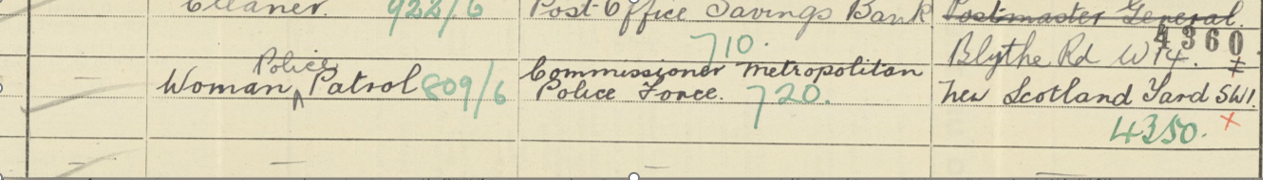 Cleaner. 922/6 Post Office Savings Bank Postmaster General.
710. 4360
Blythe Rd W14. ‡
Police
Woman ^ Patrol 809/6 Commissioner Metropolitan
Police Force. 720. New Scotland Yard SW1.
4350. ×